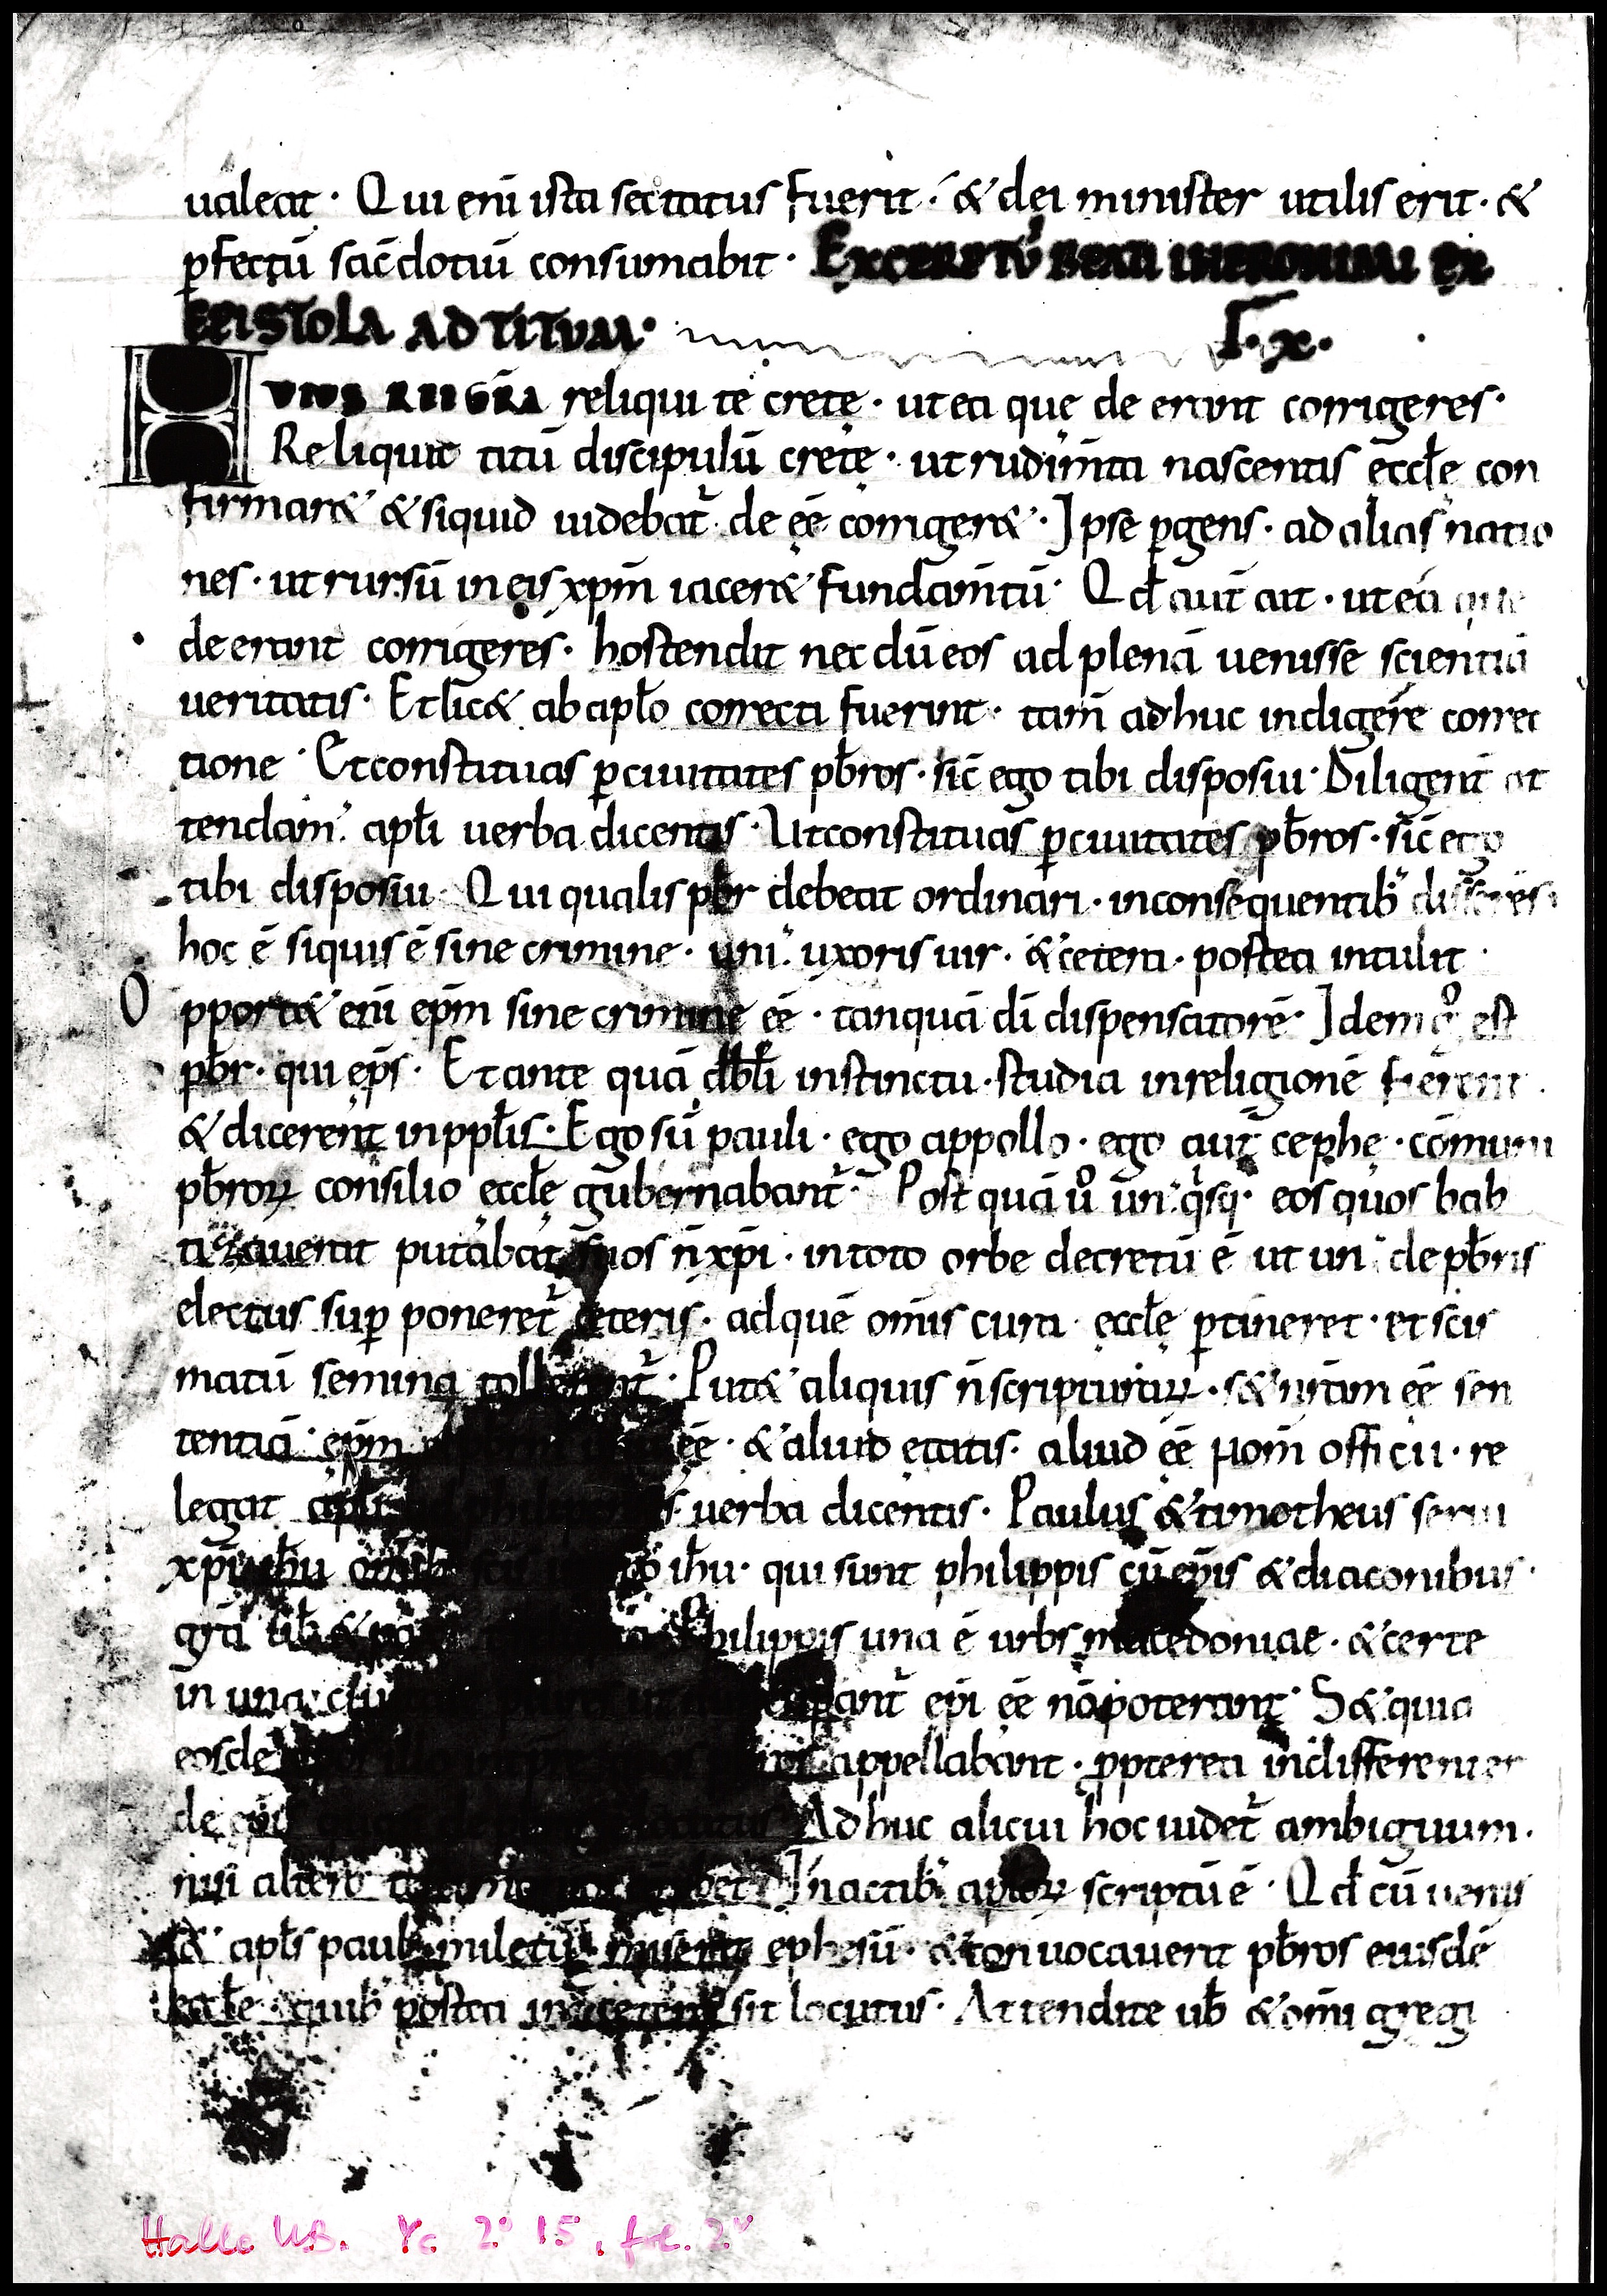 ualeat · Qui eni̅ ista sectatus fuerit · & dei minister utilis erit · &
ꝑfectu̅ sac̅dotiu̅ consumabit · EXCERPTU̅ BEATI IHERONIMI EX
EPISTOLA AD TITUM · I · x ·
HUIUS REI GR̅A reliqui te crete̜ · ut ea que̜ de erant corrigeres ·
Reliquit titu̅ discipulu̅ crete̜ · ut rudim̅ta nascentis eccł̅e̜ con
firmar& & siquid uidebat᷑ de e̅e̅ corriger& · Ipse ꝑgens · ad alias natio
nes · ut rursu̅ in eis xp̅m iacer& fundam̅tu̅ · Qđ aut̅ ait · ut ea que
de erant corrigeres · hostendit nec du̅ eos ad plena̅ uenisse scientia̅
ueritatis · Et lic& ab apł̅o correcta fuerint · tam̅ adhuc indigere correc
tione · Et constituas ꝑ ciuitates pb̅ros · sic̅ ego tibi disposui · Diligent̅ at
tendam̅ apł̅i uerba dicentis · Ut constituas ꝑ ciuitates pb̅ros · sic̅ ego
tibi disposui · Qui qualis pb̅r debeat ordinari · in consequentib;
hoc e̅ siquis e̅ sine crimine · uni᾽ uxoris uir · & cetera · postea intulit ·
O pport& eni̅ ep̅m sine crimine e̅e̅ · tanqua̅ di̅ dispensatore̅ · Idem gͦ est
pb̅r · qui ep̅s · Et ante qua̅ diabł̅i instinctu · studia in religione̅ fierent ·
& dicerent in ppł̅is · Ego su̅ pauli · ego appollo · ego aut̅ cephe̜ · co̅muni
pb̅roꝝ consilio eccł̅e̜ gubernabant᷑ · Post qua̅ uͦ un᾽qⁱsq; eos quos bab
tizauerat putabat suos n̅ xp̅i · in toto orbe decretu̅ e̅ ut un᾽ de pb̅ris
electus suꝑ poneret᷑ ceteris · ad que̅ om̅is cura eccł̅e̜ ꝑtineret · et scis
matu̅ semina tollerent᷑ · Put& aliquis n̅ scripturaꝝ · s& n̅ram e̅e̅ sen
tentia̅ · ep̅m e̅e̅ · & aliud e̜tatis · aliud e̅e̅ nom̅ officii · re
legat apł̅i uerba dicentis · Paulus & timotheus serui
xp̅i ih̅u ih̅u · qui sunt philippis cu̅ ep̅is & diaconibus ·
gr̅a philippis una e̅ urbs macedoniae · & certe
in una ciu ep̅i e̅e̅ no̅ poterant · S& quia
eosde appellabant · ꝓpterea indifferenter
de ep̅is Adhuc alicui hoc uidet᷑ ambiguum ·
In actib; apł̅oꝝ scriptu̅ e̅ · Qđ cu̅ uenis
s& apł̅s paul᾽ miletu̅ miserit ephesu̅ · & conuocauerit pb̅ros eiusde̅
eccł̅e · quib; postea int᷑ cetera sit locutus · Attendite uob̅ & om̅i gregi
Halle UB. Yc 2° 15, fol. 2v